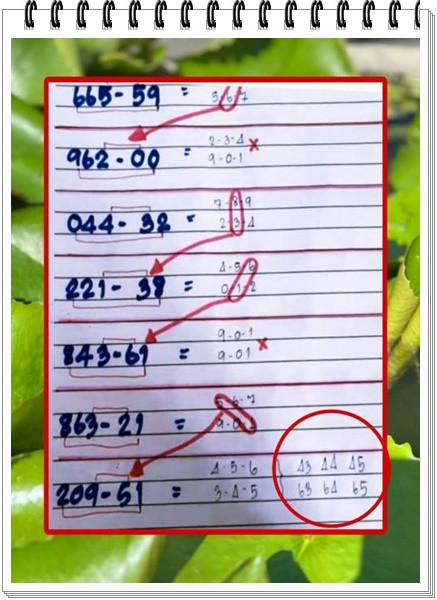 665-59 = 5 6 7
962-00 = 2-3-4 x
9-0-1
044-32 = 7-8-9
2-3-4
221-38 = 4-5-6
0-1-2
843-61 = 9-0-1
9-01 x
863-21 = 5-6-7
9-0-1
209-51 = 4-5-6
3-4-5
43 44 45
63 64 65